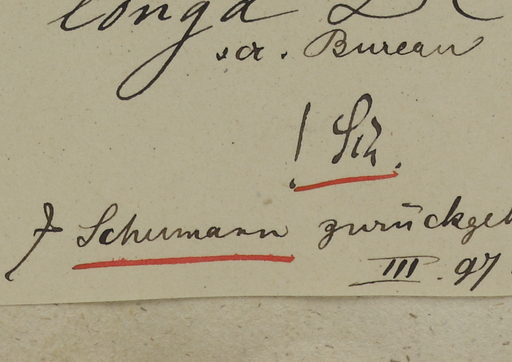 longa
scr. Bureau
! Sch.
Schumann zurückge
III. 97.